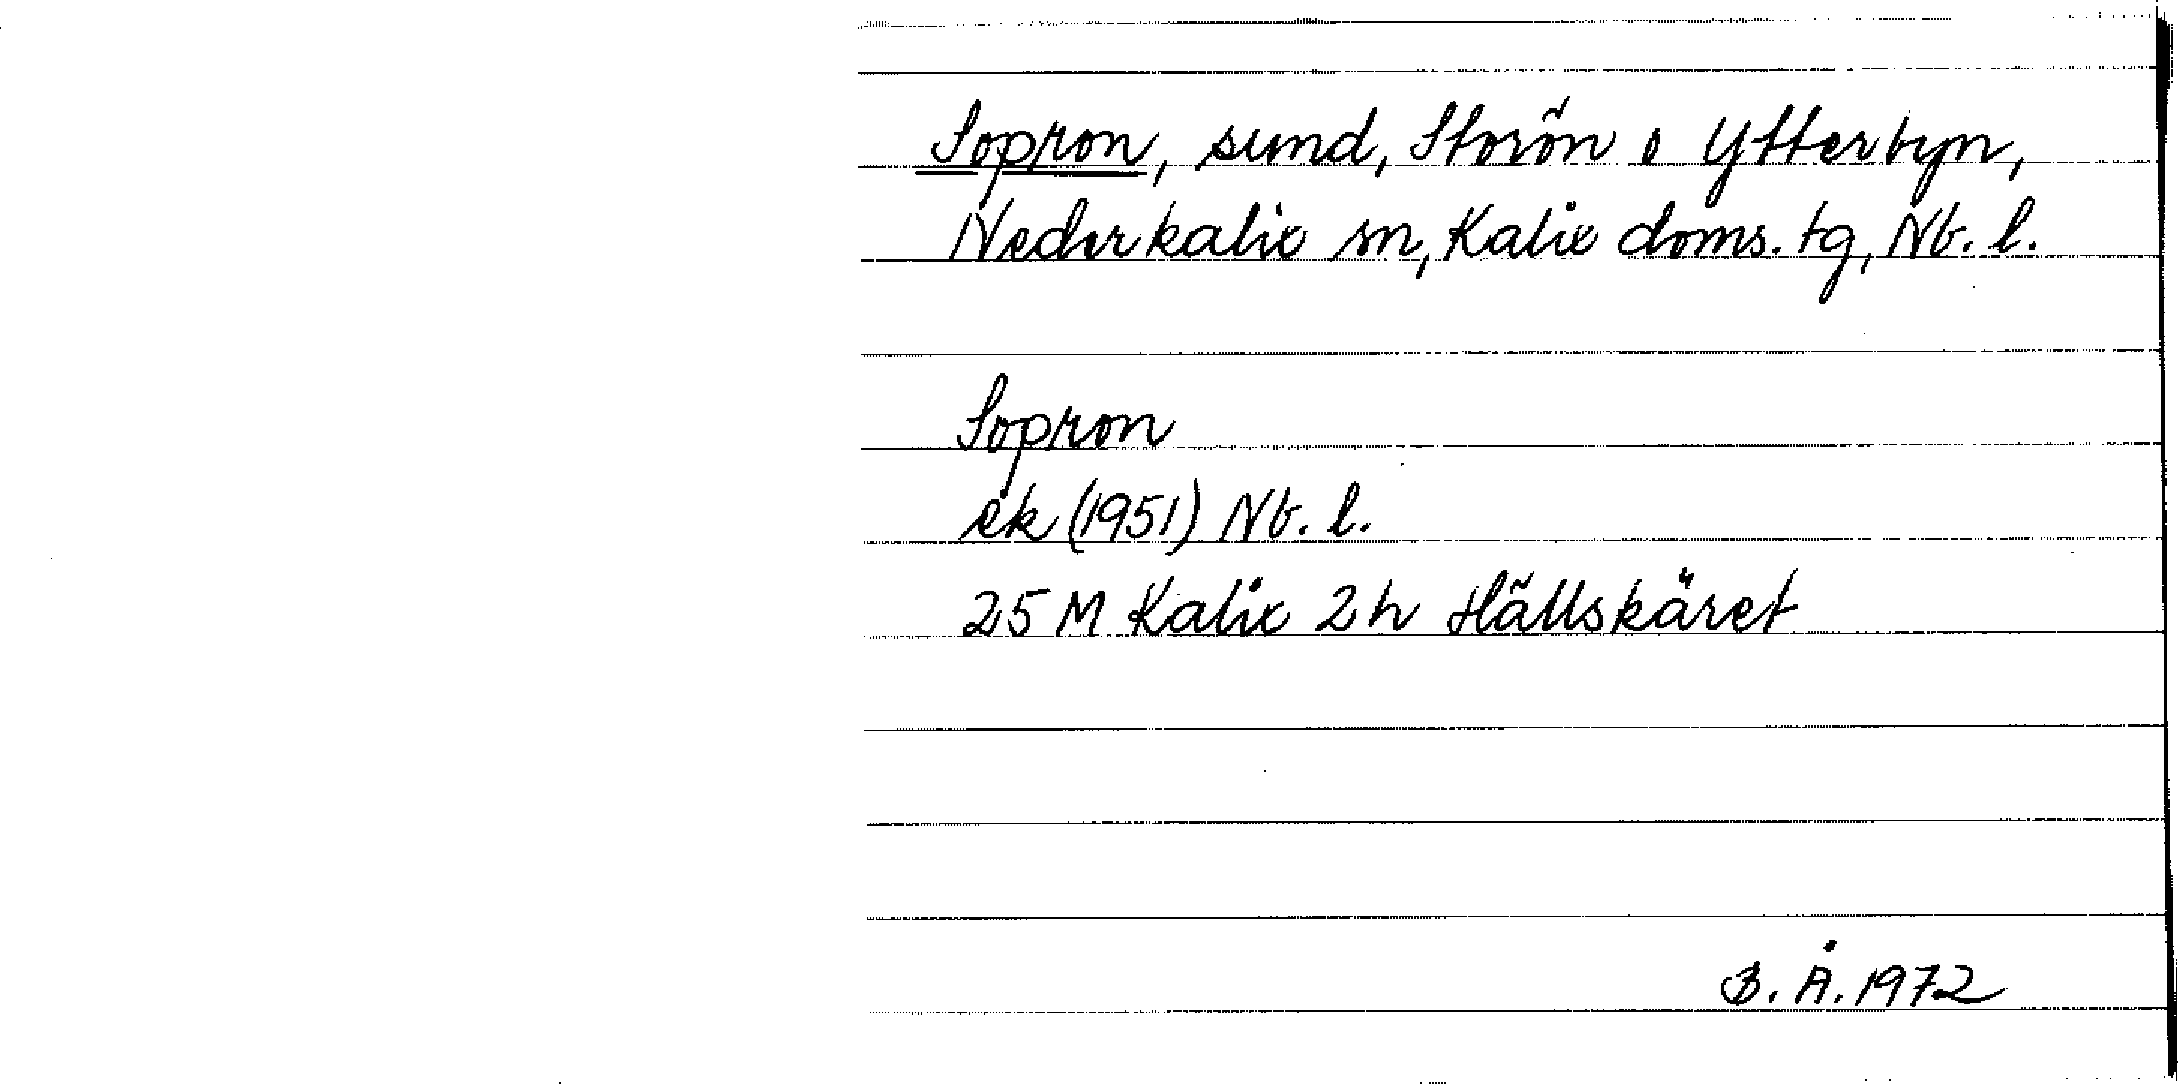 Sopron, sund, Storön o Ytterbyn,
Nederkalix sn, Kalix doms. tg, Nb. l.
Sopron
ek (1951) Nb. l.
25 M Kalix 2h Hällskäret
B. Å. 1972